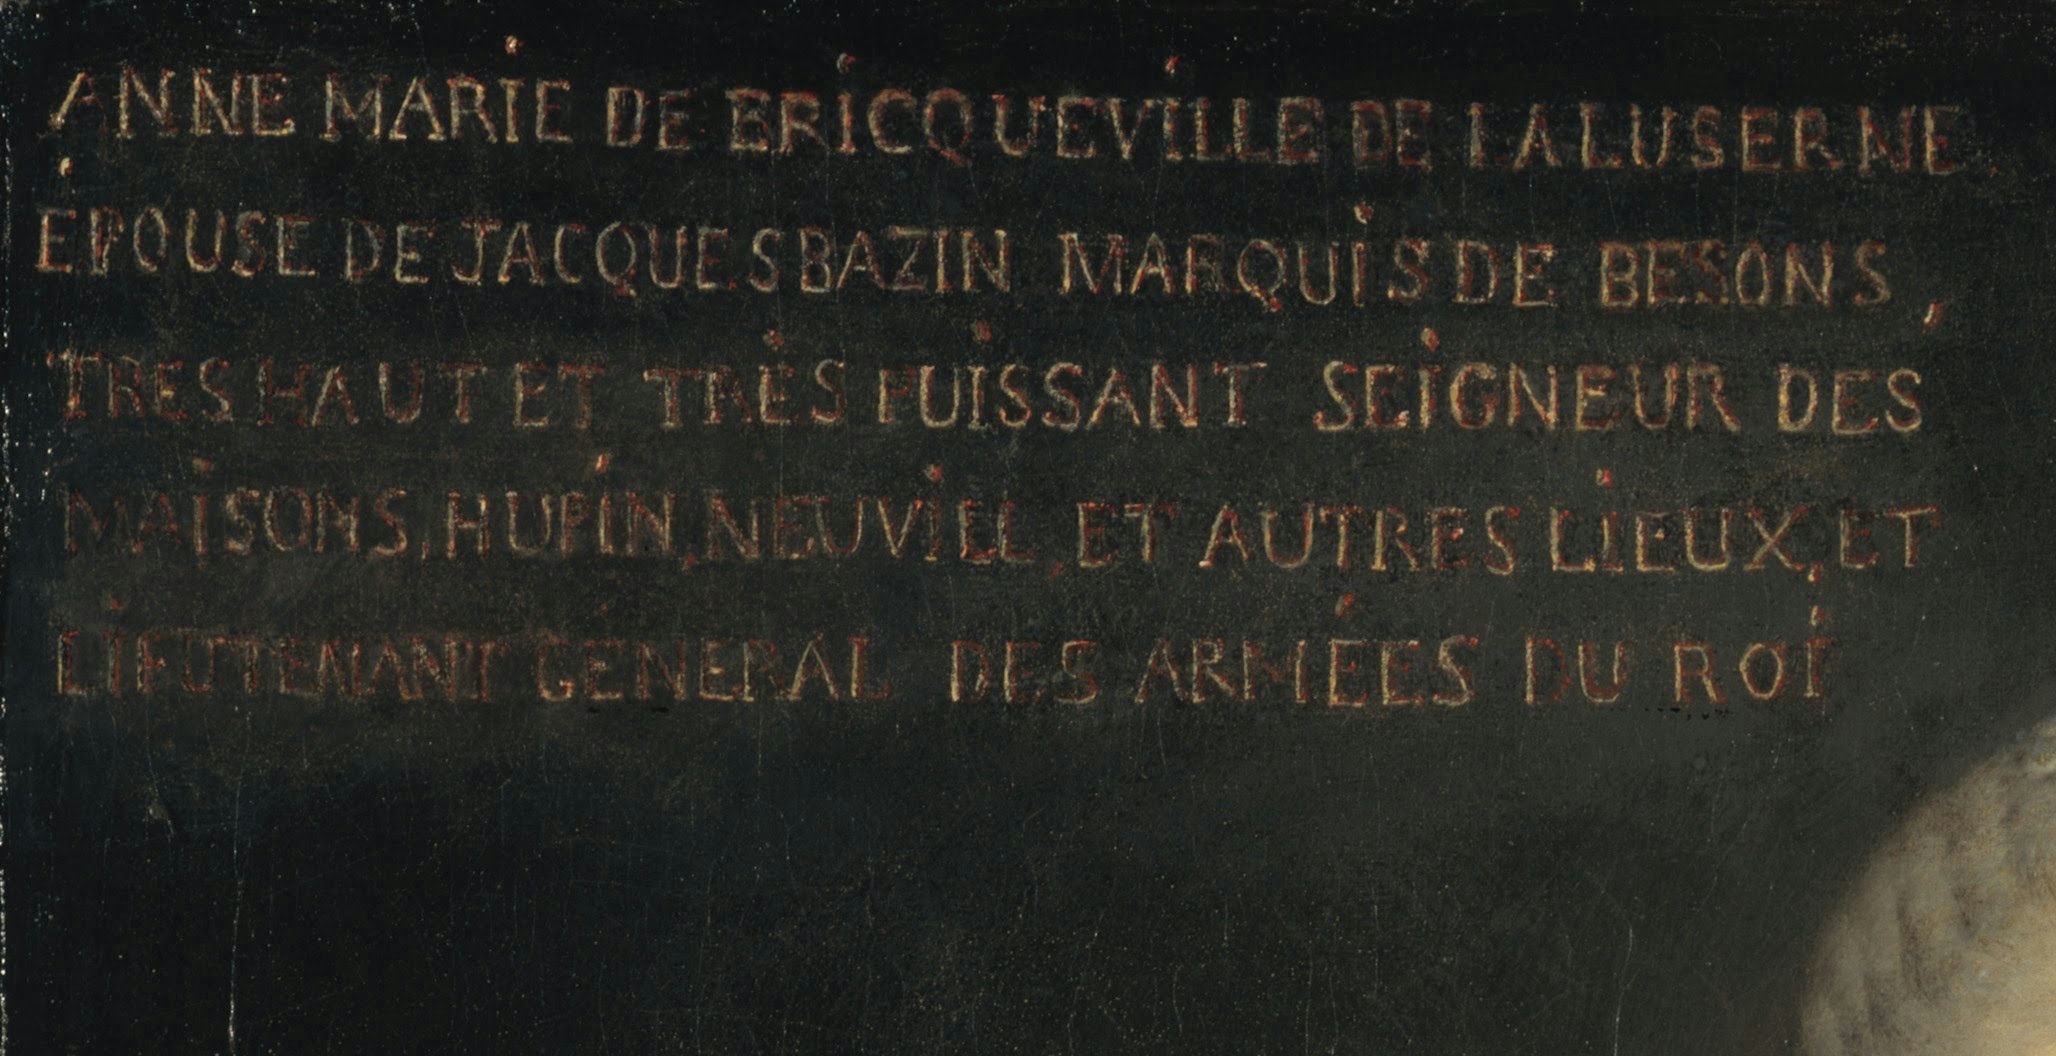 ANNE MARiE DE BRiCQUEViLLE DE LA LUSERNE
ÉPOUSE DE JACQUES BAZIN MARQUiS DE BESONS,
TRES HAUT ET TRÈS PUiSSANT SEiGNEUR DES
MAiSONS, HUPiN, NEUViLL, ET AUTRES LiEUX, ET
LiEUTENANT GÉNERAL DES ARMÉES DU ROi